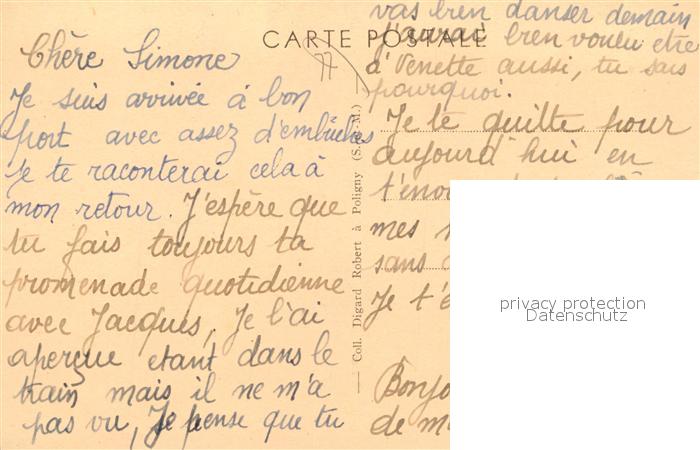 CARTE POSTALE
77
Chère Simone
Je suis arrivée à bon
port avec assez d'embûches
Je te raconterai cela à
mon retour. J'espère que
tu fais toujours ta
promenade quotidienne
avec Jacques, Je l'ai
aperçue etant dans le
train mais il ne m'a
pas vu, Je pense que tu
vas bien danser demain
J'aurai bien voulu etre
à Venette aussi, tu sais
pourquoi.
Je te quitte pour
aujourd'hui en
mes
sans
Je t'
de
Coll. Digard Robert à Poligny (S.-&-M.)
privacy protection
Datenschutz